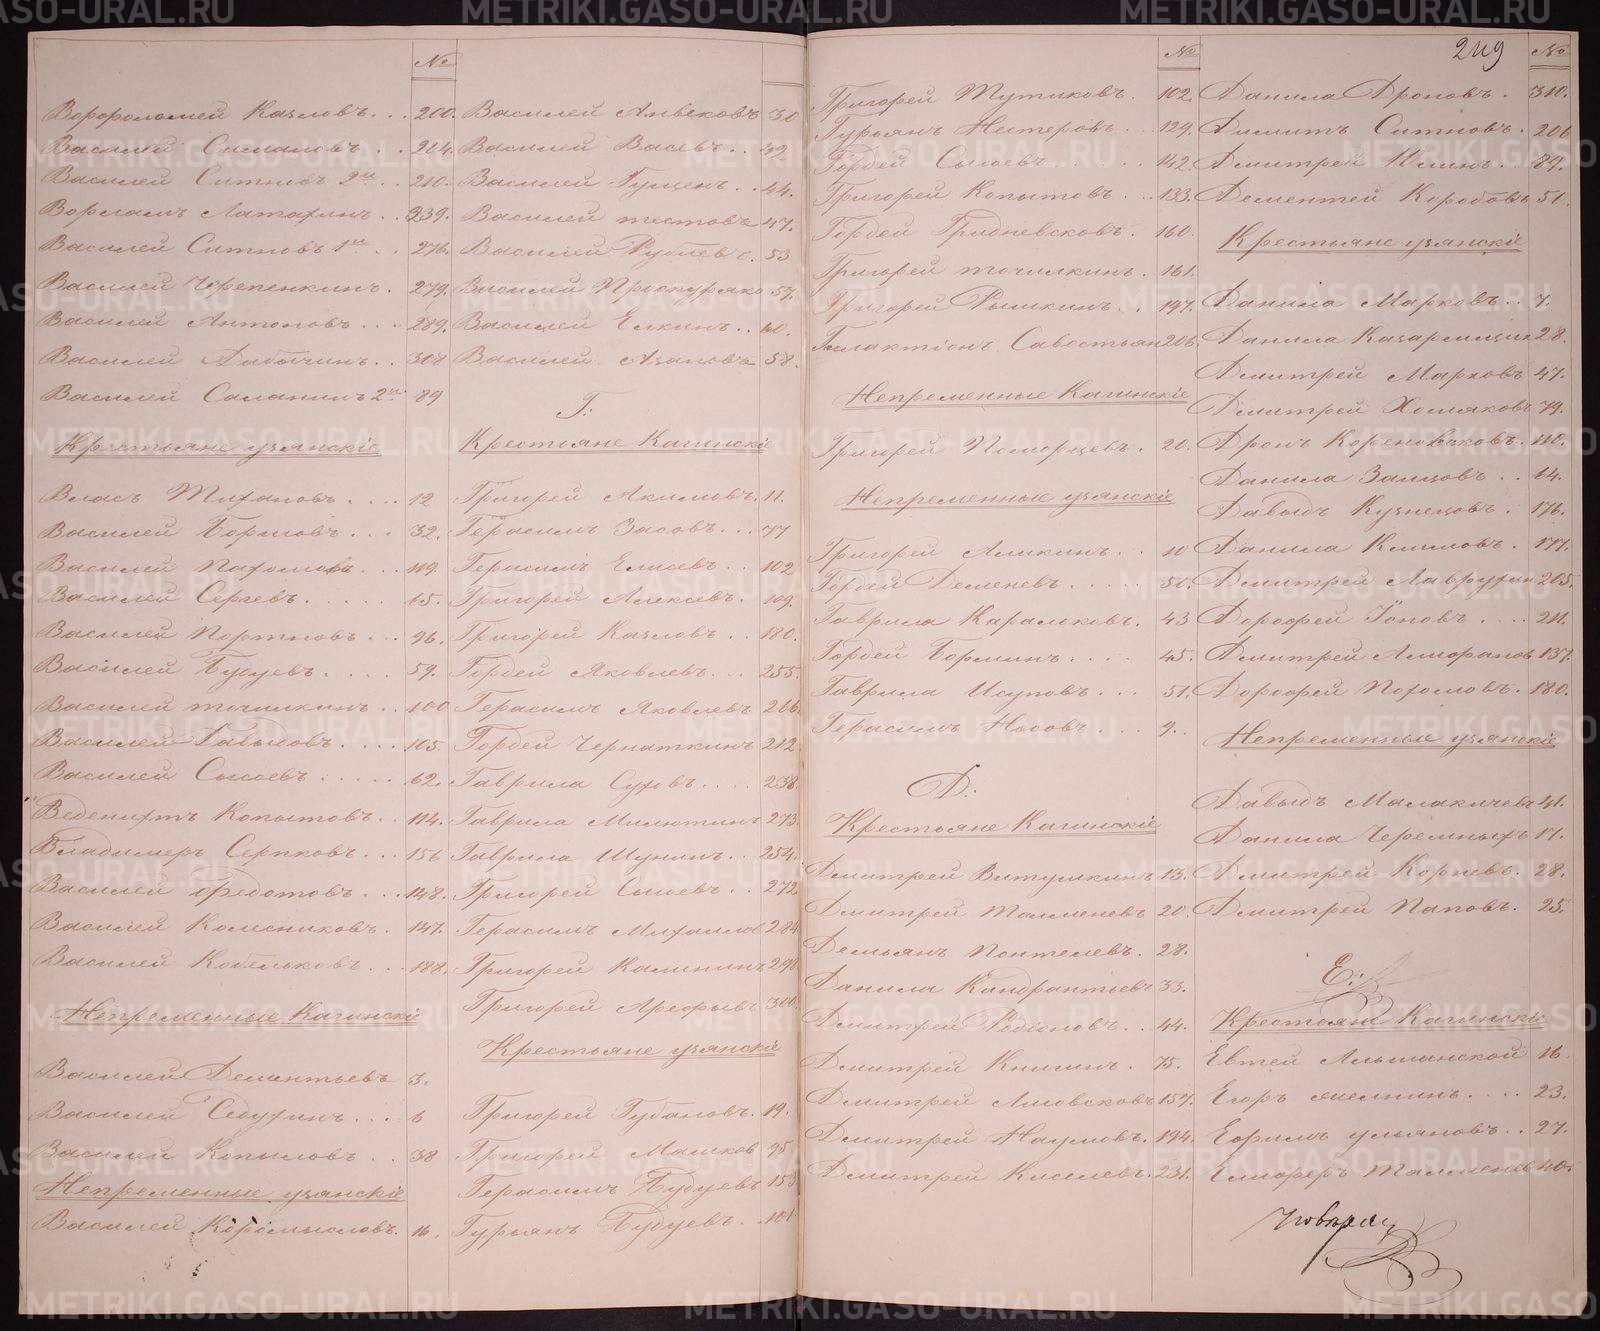 249
№
Ворфоломей Казловъ. . 200.
Василей Самаловъ . . 204.
Василей Ситновъ 2й . . 210.
Ворламъ Латахинъ . . 239.
Василей Ситновъ 1й . . 276.
Василей Черепенкинъ. 279.
Василей Антоновъ . . . 289.
Василей Бабочинъ . . 308
Василей Саланинъ 2й 89
Крестьяне узянскіе
Власъ Тихановъ . . . . 12
Василей Борисовъ . . . 32.
Василей Пахомовъ . . . 49.
Василей Сергевъ . . . . . 15.
Василей Портновъ . . . 96.
Василей Бузуевъ . . . . 59.
Василей точилкинъ . . 100
Василей Давыдовъ . . . . 105.
Василей Сысоевъ . . . . . 62.
Веденихтъ Копытовъ . . 104.
Владимеръ Серпковъ . . . 156
Василей Федотовъ . . . 148.
Василей Колесниковъ. 147.
Василей Кобельковъ . . . 188.
Непременные Кагинскіе
Василей Дементьевъ 3.
Василей Седухинъ . . . . 6
Василей Копыловъ . . 38
Непременные узянскіе
Василей Коромысловъ. 16.
Василей Анвековъ 30
Василей Васевъ . . 42
Василей Гущенъ . . 44.
Василей тестовъ 47.
Василей Рублевъ. 53
Василей Проскуряко 57.
Василей Елкинъ . . 60.
Василей Азановъ 58.
Г:
Крестьяне Кагинскіе
Григорей Акимовъ. 11.
Герасимъ Засовъ . . . 77
Герасимъ Елисевъ . . 102
Григорей Алексевъ. 109.
Григорей Казловъ . . 180.
Гордей Яковлевъ . . . 255.
Герасимъ Яковлевъ 266.
Гордей Чернаткинъ 212
Гаврила Суховъ . . . . 238.
Гаврила Милютинъ 273.
Гаврила Шунинъ . . 254.
Григорей Сысоевъ . . 272
Герасимъ Михаилов 284
Григорей Калининъ 290
Григорей Арефьевъ 300.
Крестьяне узянскіе
Григорей Губановъ. 19.
Григорей Машков 95
Герасимъ Бубуевъ 153
Гурьянъ Бубуевъ . . 101
№
Григорей Тутиковъ . 102.
Гурьянъ Нестеровъ . . . 129.
Гордей Сысоевъ . . . . . 142.
Григорей Копытовъ . . 133.
Гордей Грибневсковъ . 160.
Григорей точилкинъ . 161.
Григорей Рышкинъ . 197.
Галактіонъ Савостьян 206.
Непременные Кагинскіе
Григорей Поморцевъ . 20.
Непременные узянскіе
Григорей Аликинъ . . 10
Гордей Деменевъ . . . . . 50.
Гаврила Карамковъ. 43
Гордей Борминъ . . . . 45.
Гаврила Исуповъ . . . 51.
Герасимъ Носовъ . . . 9.
Д:
Крестьяне Кагинскіе
Дмитрей Витушкинъ 13.
Дмитрей Талменевъ 20.
Демьянъ Понтелевъ. 28.
Данила Конфрантьевъ 33.
Дмитрей Родіоновъ. . 44.
Дмитрей Книгинъ. . 75.
Дмитрей Амовсковъ 157.
Дмитрей Наумовъ. 194.
Дмитрей Киселевъ. 231.
№
Данила Дроновъ . 310.
Димитъ Ситновъ . 206
Дмитрей Юлинъ . . 89.
Дементей Коробовъ 50.
Крестьяне узянскіе
Данила Марковъ. . 7.
Данила Казармщик 28.
Дмитрей Марковъ 47.
Дмитрей Хомяковъ 79.
Дронъ Кореновсковъ. 110.
Данила Заицовъ . . 14.
Давыдъ Кузнецовъ . 176.
Данила Климовъ . 177.
Дмитрей Лаврухин 205.
Дорофей Іоновъ . . . . 211.
Дмитрей Алфорапов 137.
Дорофей Похомовъ. 180.
Непременные узянскіе
Давыдъ Малакичевъ 41.
Данила Черемныхъ 17.
Дмитрей Корневъ. 28.
Дмитрей Паповъ. 25.
Е:
Крестьяне Кагинскіе
Евтей Альшанской 16.
Егоръ амелнинъ . . . . 23.
Ефимъ ульяновъ . . 27.
Елиферъ Талменев 40.